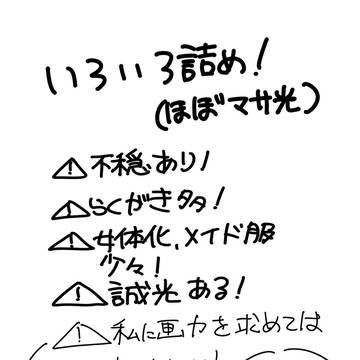 いろいろ詰め!
(ほぼマサ光)
⚠不穏あり!
⚠らくがき多!
⚠女体化、メイド服
少々!
⚠誠光ある!
⚠私に画力を求めては